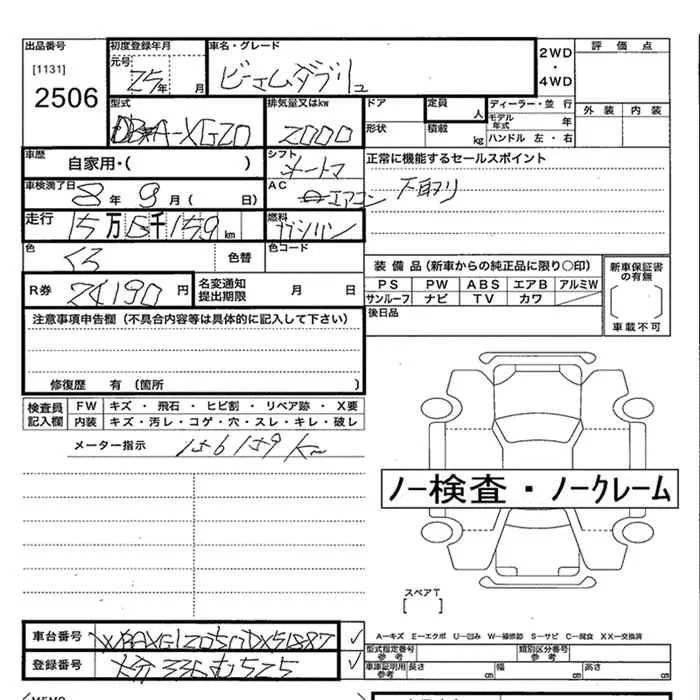 出品番号 初度登録年月 車名・グレード 2WD・4WD 評価点
[1131] 元号 25年 月 ビーエムダブリュ
2506
型式 排気量又はkw ドア 定員 人 ディーラー・並行 外装 内装
A-XG20 2000 形状 積載 kg モデル年式 年
ハンドル 左・右
車歴 シフト 正常に機能するセールスポイント
自家用・( ) オートマ
車検満了日 AC
8年 9月( 日) エアコン 下取り
走行 燃料
15万6千159km ガソリン
色 色替 色コード
くろ
装備品(新車からの純正品に限り○印) 新車保証書の有無
R券 24190円 名変通知提出期限 月 日
PS PW ABS エアB アルミW
サンルーフ ナビ TV カワ
後日品 車載不可
注意事項申告欄(不具合内容等は具体的に記入して下さい)
修復歴 有 (箇所 )
検査員記入欄 FW キズ・飛石・ヒビ割・リペア跡・X要
内装 キズ・汚レ・コゲ・穴・スレ・キレ・破レ
メーター指示 156159 Km
ノー検査・ノークレーム
スペアT
[ ]
A−キズ E−エクボ U−凹み W−補修跡 S−サビ C−腐食 XX−交換済
車台番号
型式指定番号 参考 類別区分番号 参考
登録番号 大分 336 む 525
車庫証明用 参考 長さ cm 幅 cm 高さ cm
MEMO